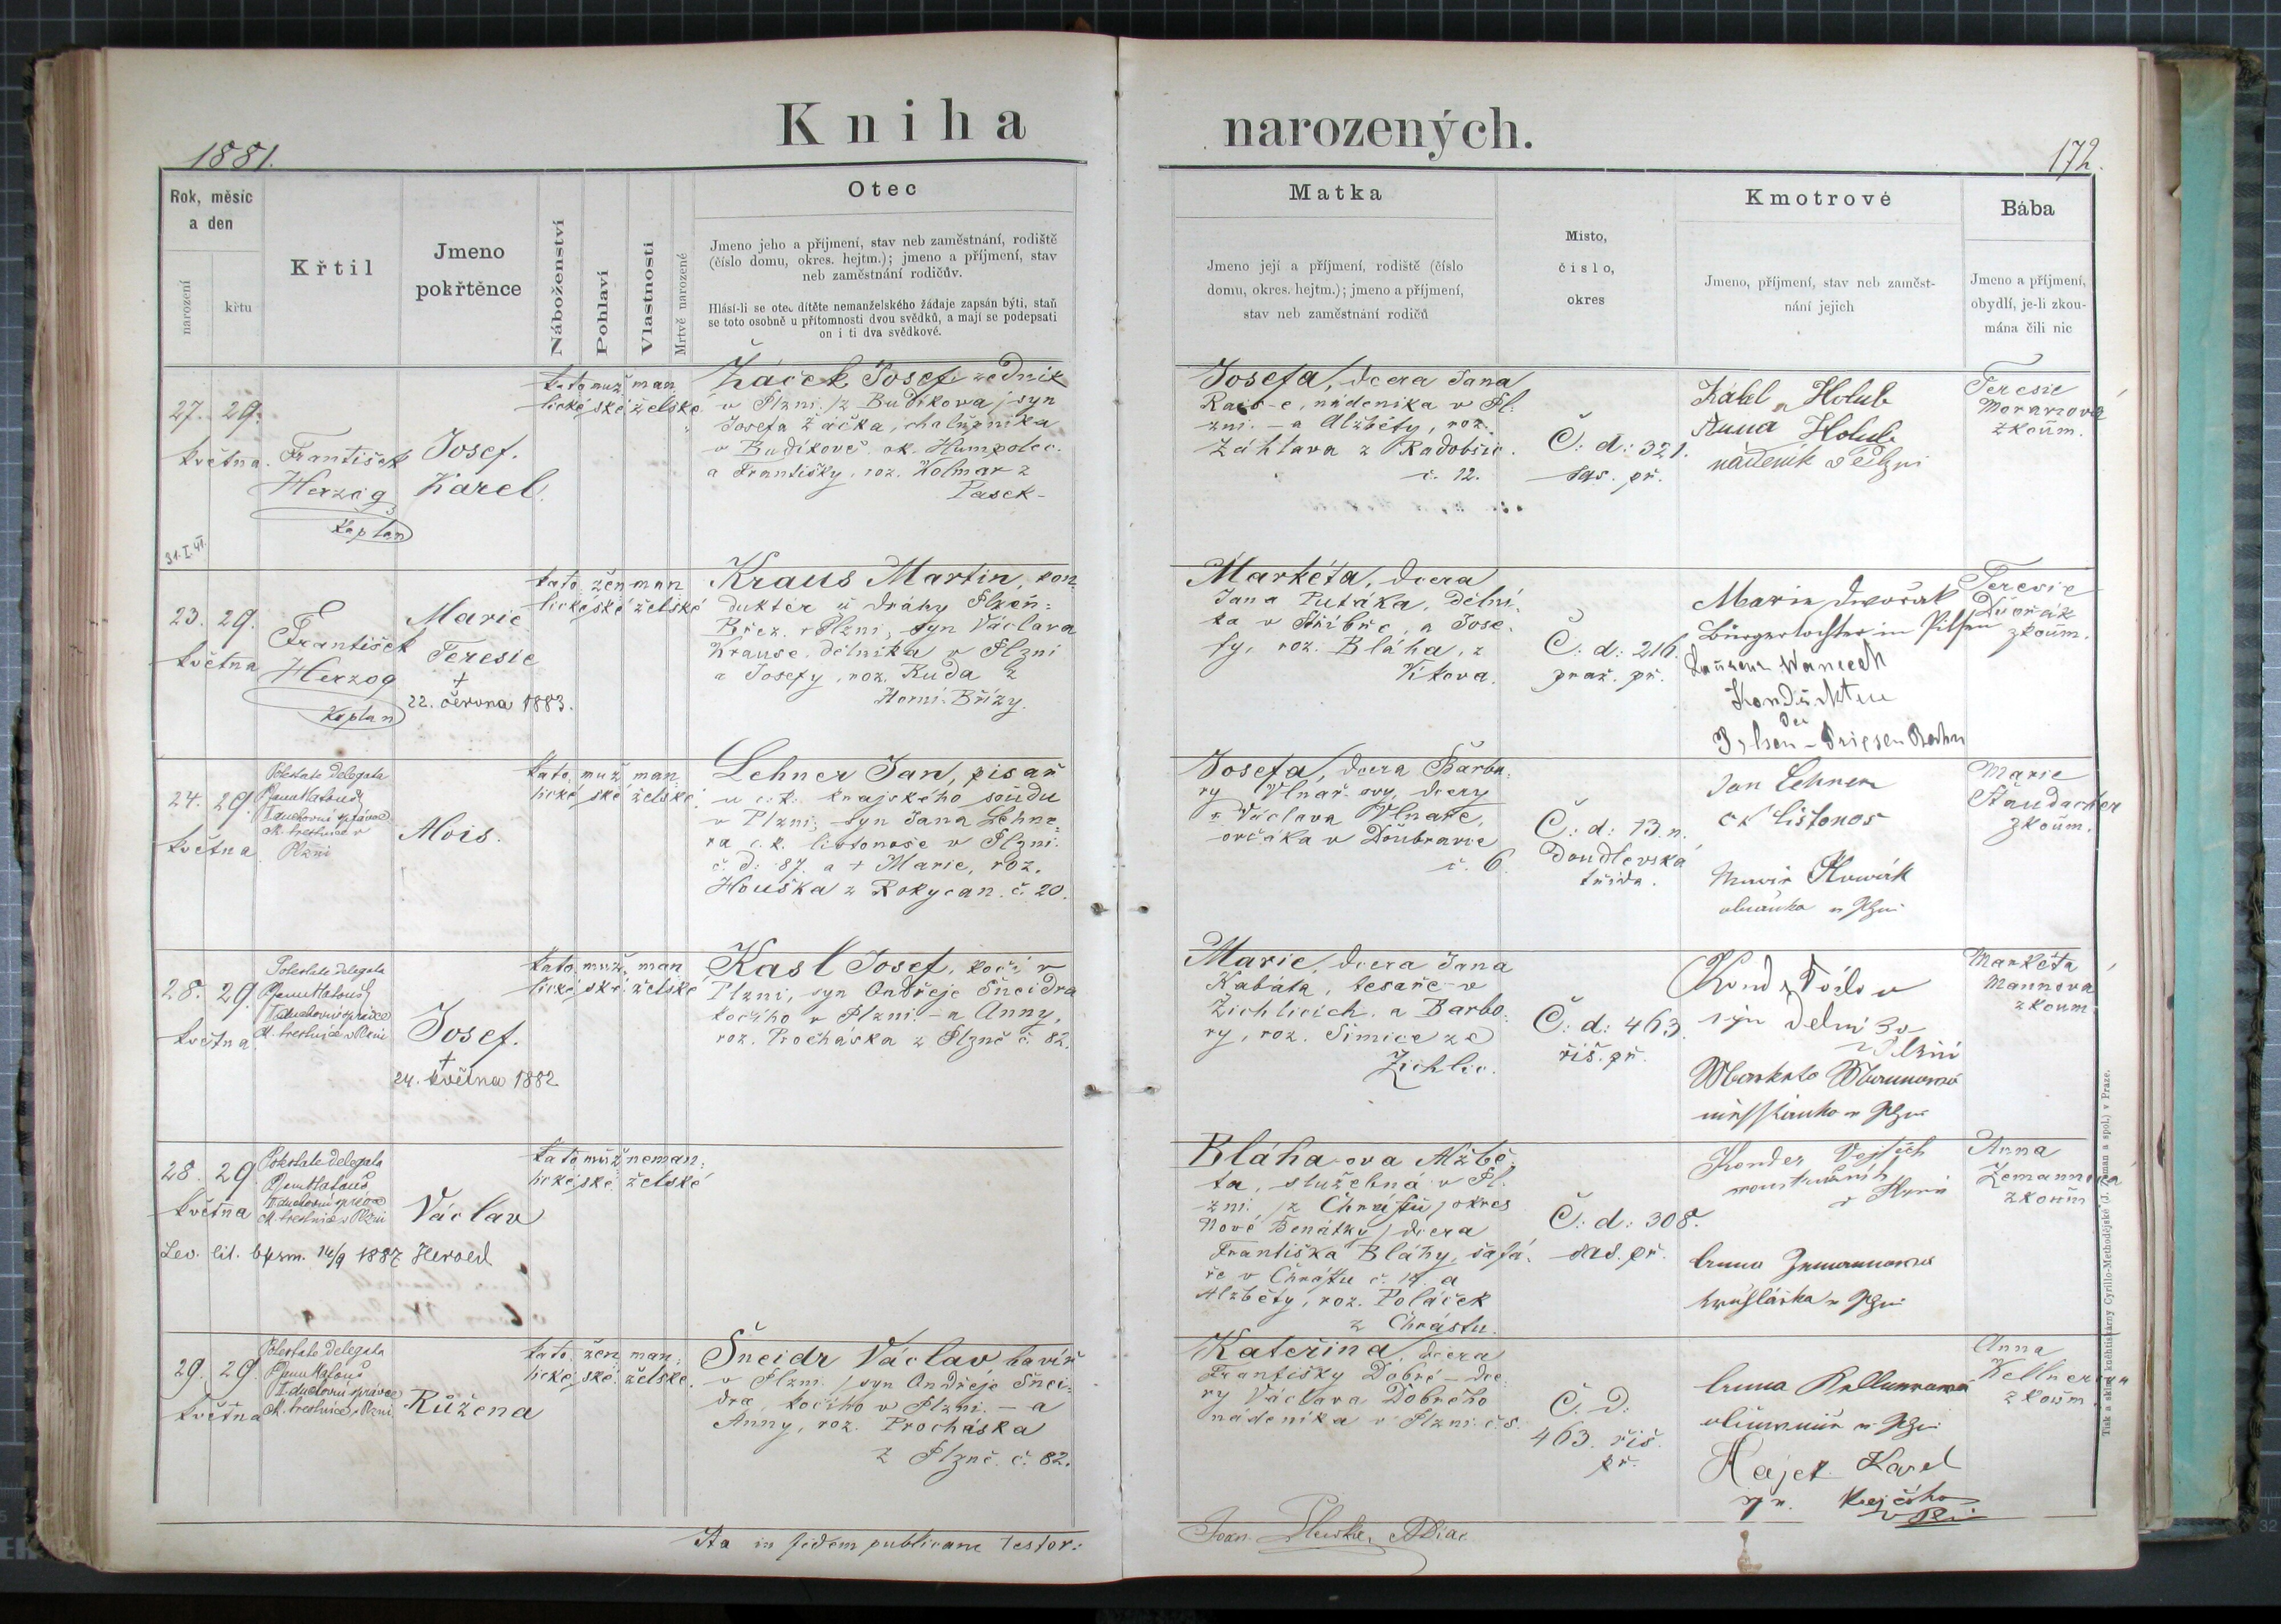 Kniha narozených.
1881.
172.
Rok, měsíc
a den
narození
křtu
Křtil
Jmeno
pokřtěnce
Náboženství
Pohlaví
Vlastnosti
Mrtvě narozené
Otec
Jmeno jeho a příjmení, stav neb zaměstnání, rodiště
(číslo domu, okres. hejtm.); jmeno a příjmení, stav
neb zaměstnání rodičův.
Hlásí-li se otec dítěte nemanželského žádaje zapsán býti, staň
se toto osobně u přítomnosti dvou svědků, a mají se podepsati
on i ti dva svědkové.
Matka
Jmeno její a příjmení, rodiště (číslo
domu, okres. hejtm.); jmeno a příjmení,
stav neb zaměstnání rodičů
Místo,
číslo,
okres
Kmotrové
Jmeno, příjmení, stav neb zaměst-
nání jejich
Bába
Jmeno a příjmení,
obydlí, je-li zkou-
mána čili nic
27. 29.
května.
František
Herzog
kaplan
Josef.
Karel.
kato muž man
lické ské želské
Žáček Josef zedník
v Plzni /z Budíkova/ syn
Josefa Žáčka, chalupníka
v Budíkově ok. Humpolec.
a Františky, roz. Holmar z
Pasek-
Josefa, dcera Jana
nádeníka v Pl.
zni. - a Alžběty, roz.
Záhlava z Radobšic.
č. 12.
Č: d: 321.
sas. př.
Karel Holub
Anna Holub
nádeník v Plzni
Teresie
Moravová
zkoum.
31. I. 41.
23. 29.
května
František
Herzog
kaplan
Marie
Teresie
+
22. června 1883.
kato žen man
lické ské želské
Kraus Martin, kon
duktér u dráhy Plzeň=
Břez. v Plzni, syn Václava
Krause, dělníka v Plzni
a Josefy, roz. Ruda z
Horní-Břízy.
Markéta, dcera
Jana Putáka, dělní
ka v Stříbře, a Jose
fy, roz. Bláha, z
Vikova.
Č: d: 216.
praž. př.
Marie Dvořak
Bürgertochter in Pilsen
Wanecek
Kondukteur
der
Pilsen-Priesen Bahn
Teresie
Dvořák
zkoum.
24. 29.
května
Potestate delegata
Jan Matouš
duchovní správce
c.k. trestnice v
Plzni
Alois.
kato. muž man.
lické ské želské
Lehner Jan, písař
u c.k. krajského soudu
v Plzni, syn Jana Lehne
ra c.k. listonoše v Plzni.
č. d: 87. a + Marie, roz.
Houška z Rokycan. č. 20.
Josefa, dcera Barbo
ry Vlnař-ovy, dcery
+ Václava Vlnaře,
ovčáka v Doubravce
č. 6.
Č: d: 13. n.
Doudlevská
třída.
Jan Lehner
c k listonos
Marie
v Plzni
Marie
Staudacher
zkoum.
28. 29.
května.
Potestate delegata
Jan Matouš
duchovní správce
c.k. trestnice v Plzni
Josef.
+
24. května 1882.
kato. muž. man
lické ské želské
Kasl Josef, kočí v
Plzni, syn Ondřeje Šneidra
kočího v Plzni. - a Anny,
roz. Procháska z Plzně č. 82.
Marie, dcera Jana
Kabáta, tesaře v
Žichlicích, a Barbo
ry, roz. Šimice ze
Žichlic.
Č: d: 463
říš. př.
syn
v Plzni
v Plzni
Markéta
Mannova
zkoum
28. 29.
května
Potestate delegata
Jan Matouš
duchovní správce
c.k. trestnice v Plzni
Václav
kato muž neman:
lické ské. želské
14/9 1887 Herold
Bláha-ova Alžbě
ta, služebná v Pl.
zni. /z Chrástu, okres
Nové Benátky/ dcera
Františka Bláhy, šafá.
ře v Chrástu č. 14. a
Alžběty, roz. Poláček
z Chrástu.
Č: d: 308.
sas. př.
Vojtěch
Anna Zemannova
v Plzni
Anna
Zemannová
zkoum
29. 29.
května
Potestate delegata
Jan Matouš
duchovní správce
c.k. trestnice v Plzni
Růžena
kato. žen man:
lické ské. želské.
Šneidr Václav, havíř
v Plzni. /syn Ondřeje Šnei:
dra, kočího v Plzni. - a
Anny, roz. Procháska
z Plzně. č. 82.
Kateřina, dcera
Františky Dobré - dce
ry Václava Dobrého
nádeníka v Plzni č. s.
Č. D:
463. říš.
př.
Anna Kellnerova
v Plzni
Hájek Karel
Anna
Kellnerova
zkoum
Ita in fidem publicam testor: